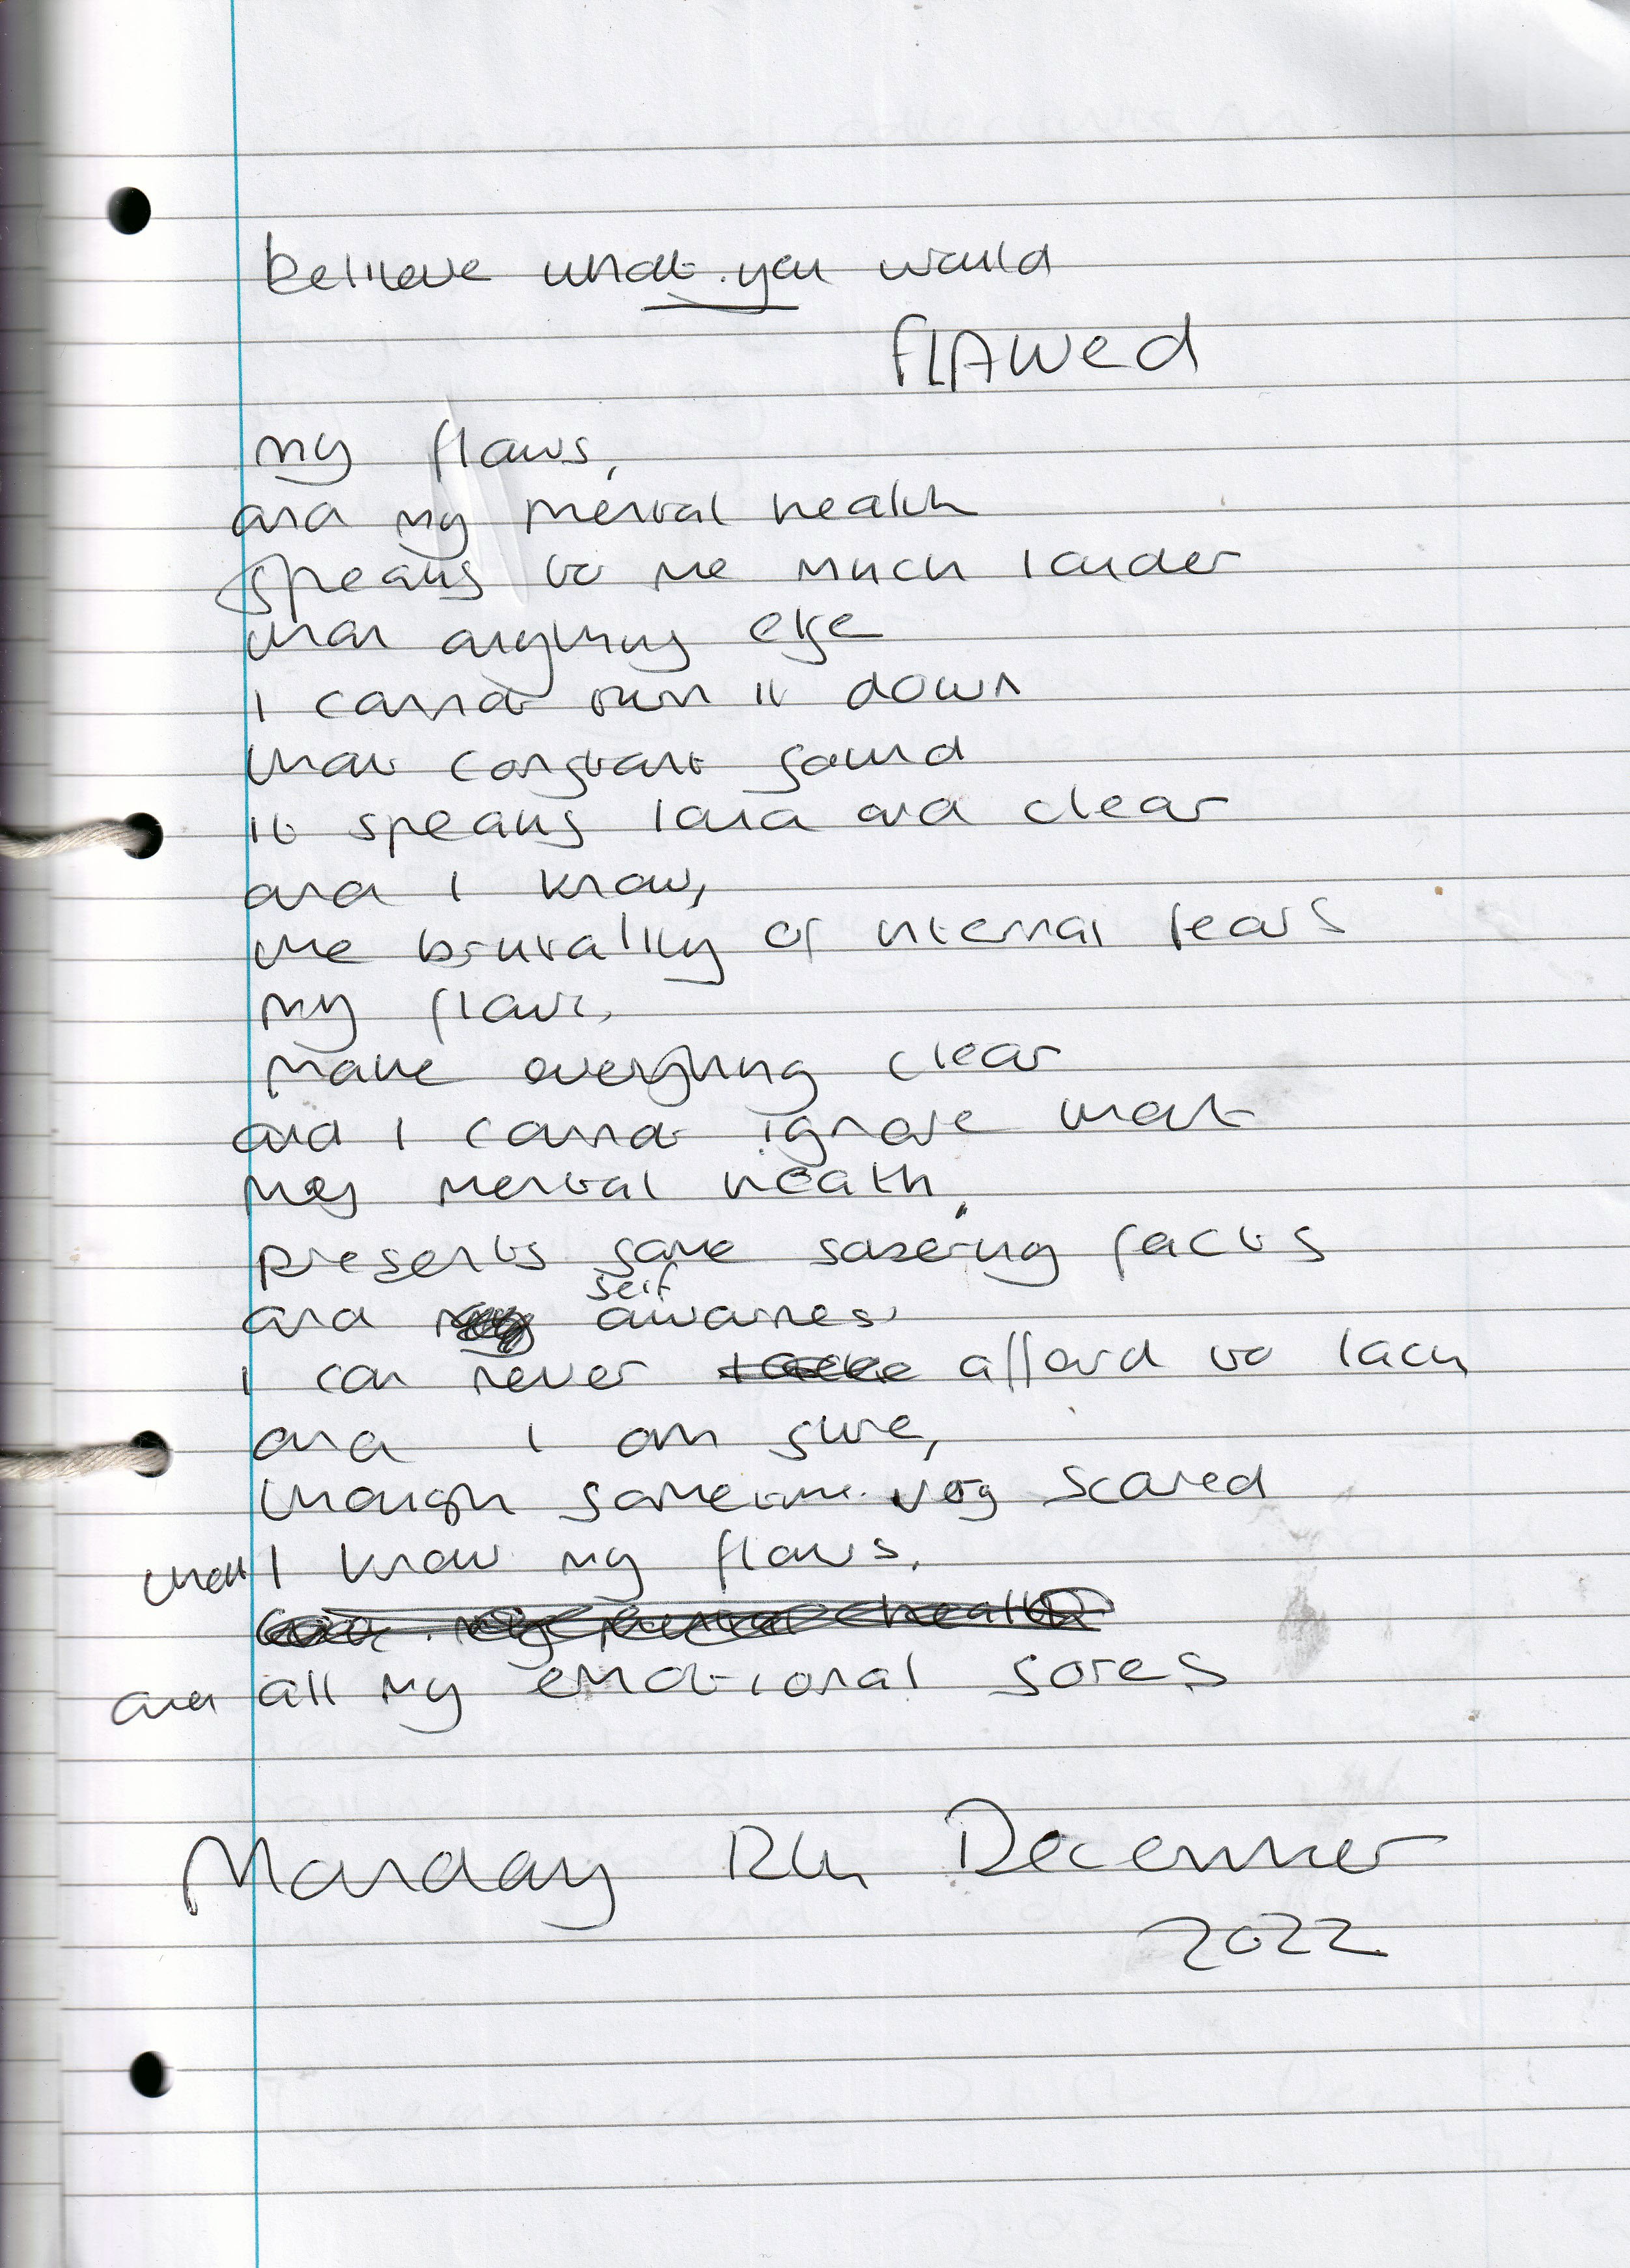 believe what you would
FLAWed
my flaws,
and my mental health
speaks to me much louder
than anything else
I cannot turn it down
that constant sound
it speaks loud and clear
and I know,
the brutality of internal fears
my flaws,
make everything clear
and I cannot ignore what
my mental heath,
presents some sobering facts
and self awarness
I can never afford to lack
and I am sure,
though sometimes very scared
that I know my flaws,
and all my emotional sores
Monday 12th December
2022